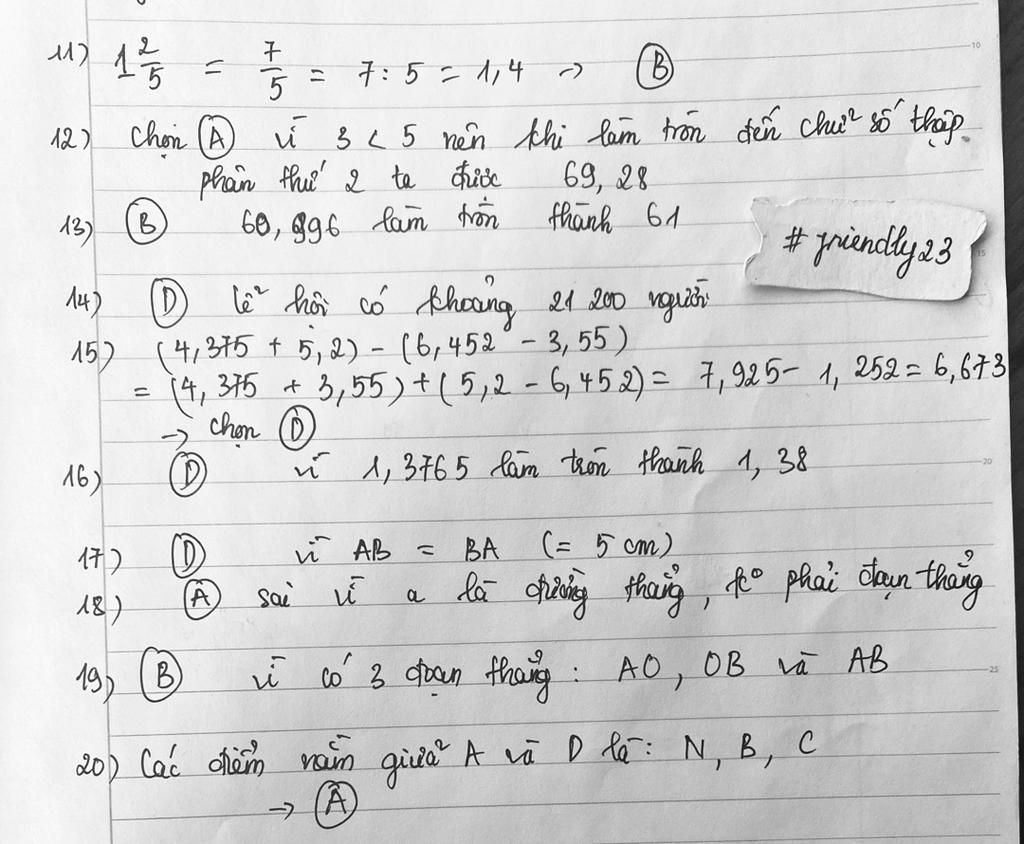 11) 1 2/5 = 7/5 = 7 : 5 = 1,4 → B
12) Chọn A vì 3 < 5 nên khi làm tròn đến chữ số thập
phân thứ 2 ta được 69,28
13) B 60,996 làm tròn thành 61
# friendly23
14) D Lễ hội có khoảng 21 200 người
15) (4,375 + 5,2) - (6,452 - 3,55)
= (4,375 + 3,55) + (5,2 - 6,452) = 7,925 - 1,252 = 6,673
→ chọn D
16) D vì 1,3765 làm tròn thành 1,38
17) D vì AB = BA (= 5 cm)
18) A sai vì a là đường thẳng, k° phải đoạn thẳng
19) B vì có 3 đoạn thẳng : AO, OB và AB
20) Các điểm nằm giữa A và D là: N, B, C
→ A
10
15
20
25